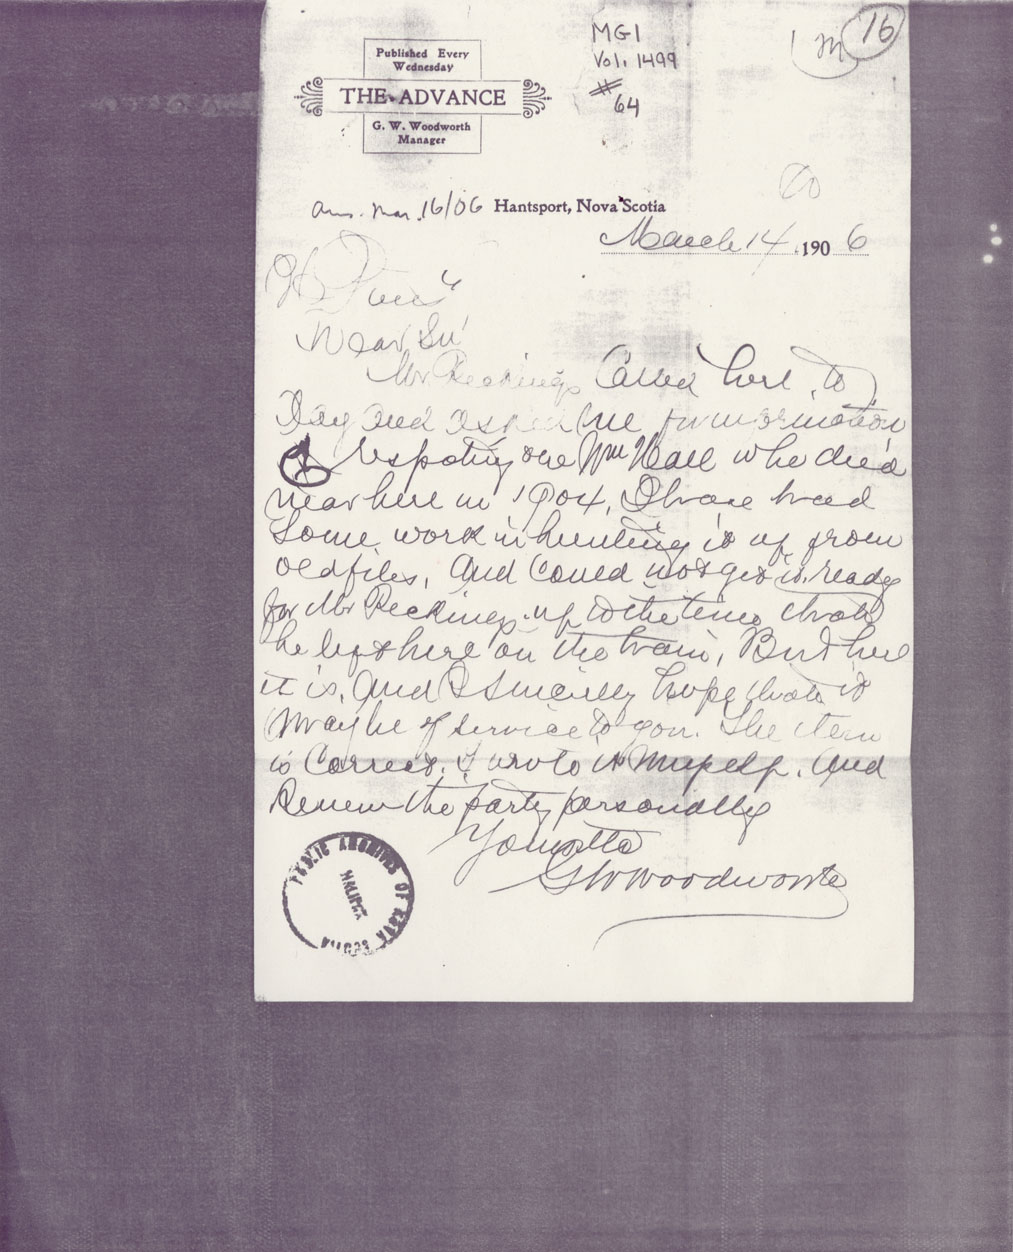 MG1
Vol. 1499
# 64
16
Published Every
Wednesday
THE ADVANCE
G. W. Woodworth
Manager
ans. Mar. 16/06 Hantsport, Nova Scotia
March 14 1906
H
Dear Sir
Mr Reckings Called here to
Day and asked me for information
respecting one Wm Hall who died
near here in 1904, I have had
Some work in hunting it up from
old files, And Could not get it ready
for Mr Reckings up to the time that
he left here on the train, But here
it is, And I sincerely hope that it
may be of service to you. The item
is Correct, I wrote it Myself. And
Knew the party personally
Yours tr
GW Woodworth
PUBLIC ARCHIVES OF NOVA SCOTIA
HALIFAX